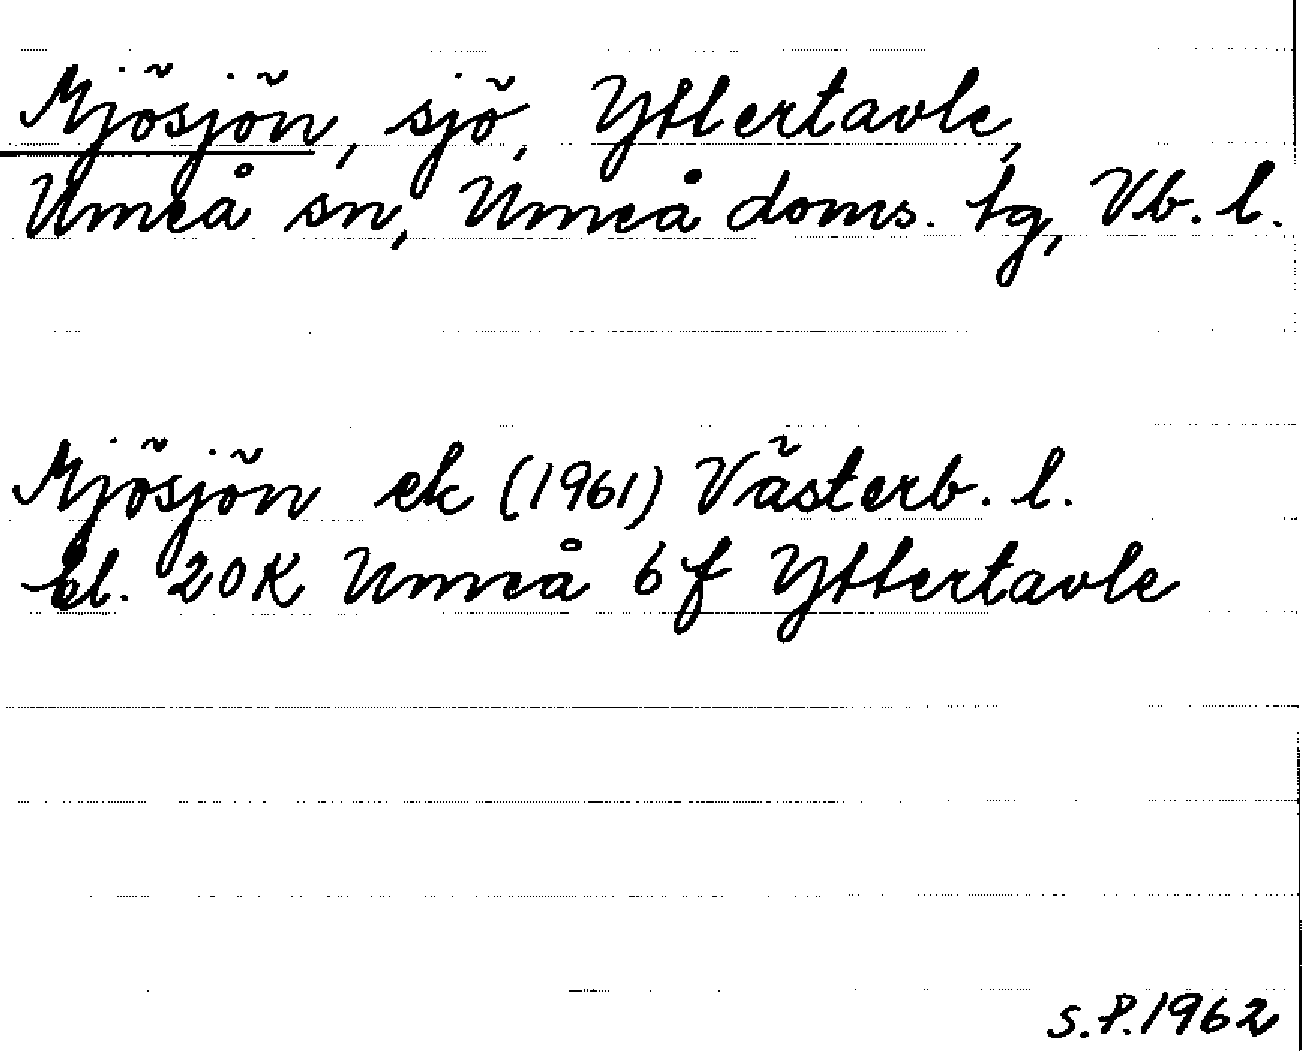 Mjösjön, sjö, Yttertavle,
Umeå sn, Umeå doms. tg, Vb. l.
Mjösjön ek (1961) Västerb. l.
bl. 20K Umeå 6f Yttertavle
S.P. 1962